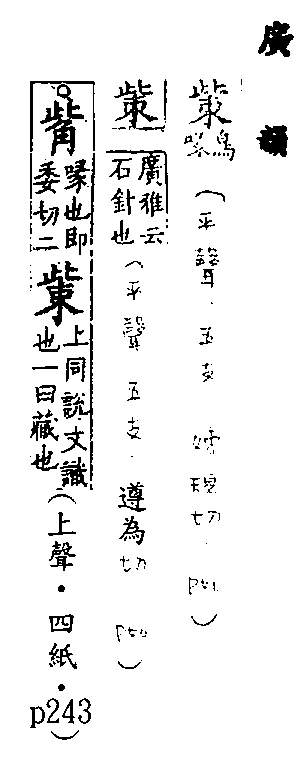 廣韻
㭰鳥喙（平聲．五支 切．）
㭰廣雅云石針也（平聲 五支．遵為切 ）
觜喙也即委切二㭰上同說文識也一曰藏也（上聲．四紙．p243）